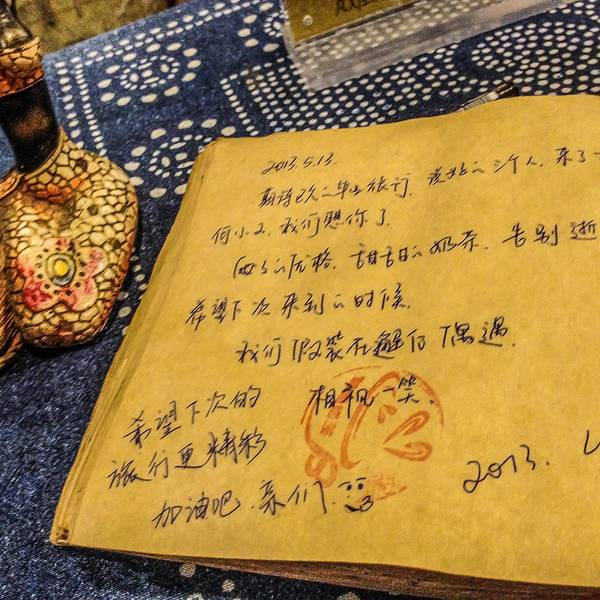 2013.5.13.
期待已久的毕业旅行, 说好的三个人, 来了一
何小之, 我们想你了
的优格, 甜甜的奶茶, 告别逝
希望下次来到的时候,
我们假装在邂后偶遇,
相视一笑.
希望下次的
旅行更精彩
加油吧, 亲们.
2013.